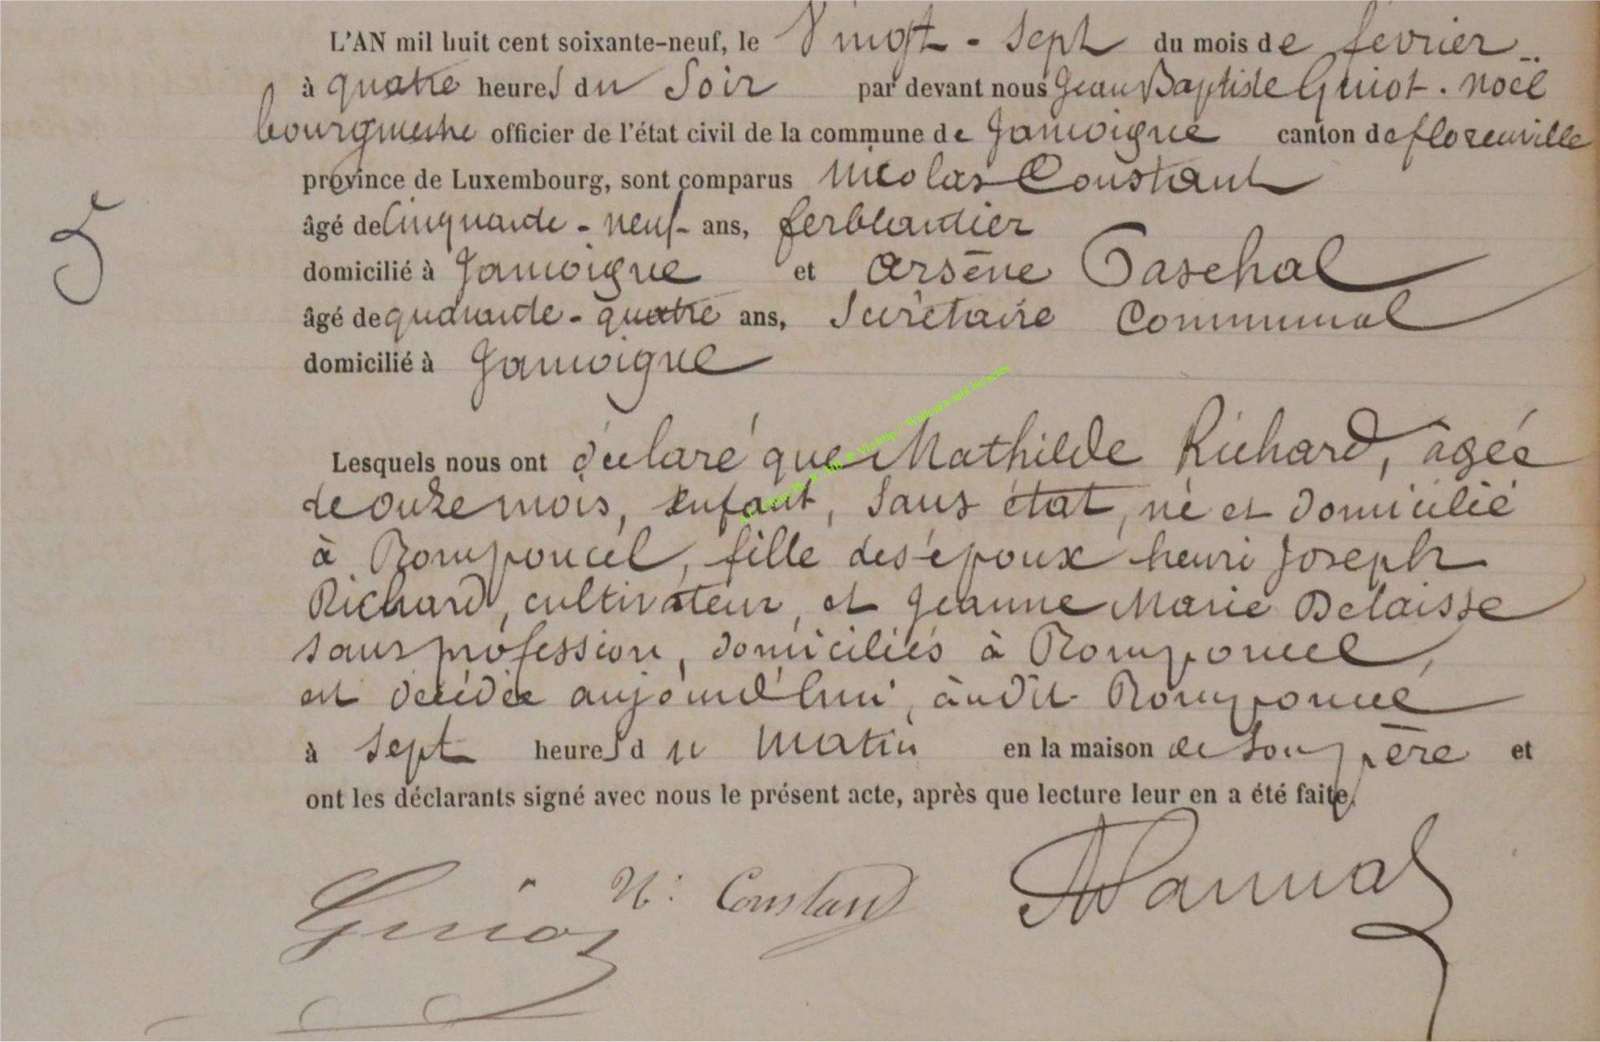 L'AN mil huit cent soixante-neuf, le Vingt - Sept du mois de février
à quatre heures du Soir par devant nous Jean Baptiste Guiot . noël
bourgmestre officier de l'état civil de la commune de Jamoigne canton de florenville
province de Luxembourg, sont comparus Nicolas Constant
âgé de Cinquante - neuf ans, ferblantier
domicilié à Jamoigne et arsène Paschal
5
âgé de quarante - quatre ans, Secrétaire Communal
domicilié à Jamoigne
Lesquels nous ont déclaré que Mathilde Richard, âgée
de onze mois, enfant, Sans état, né et domicilié
à Romponcel, fille des époux henri Joseph
Richard, cultivateur, et Jeanne Marie Delaisse
sans profession, domiciliés à Romponcel,
est décédée aujourd'hui, audit Romponcel
à Sept heures du matin en la maison de son père et
ont les déclarants signé avec nous le présent acte, après que lecture leur en a été faite.
Guiot N: Constant